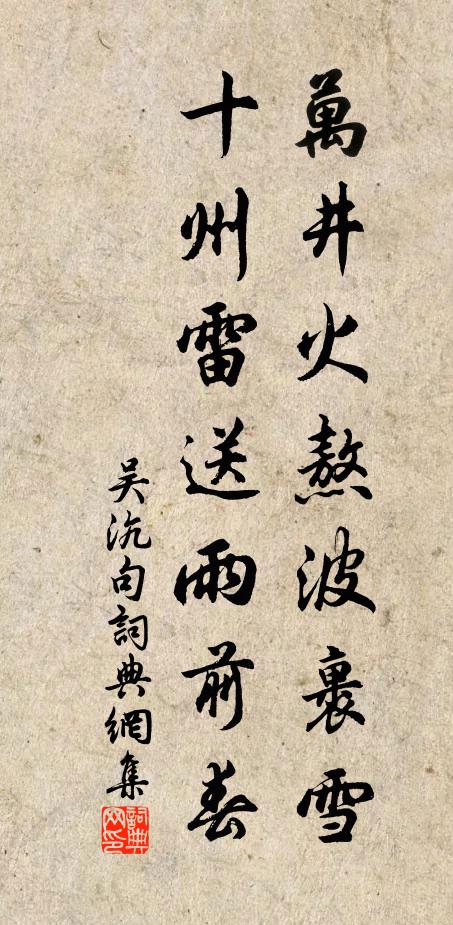 萬井火熬波裏雪
十州雷送雨前春
吴沉句詞典網集
詞典网印